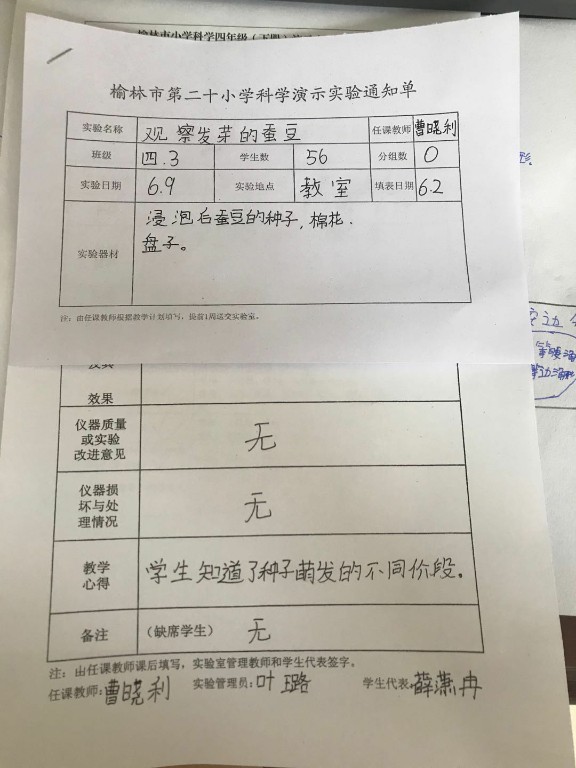 榆林市小学科学四年级(下册)
榆林市第二十小学科学演示实验通知单
实验名称 观察发芽的蚕豆 任课教师 曹晓利
班级 四.3 学生数 56 分组数 0
实验日期 6.9 实验地点 教室 填表日期 6.2
浸泡后蚕豆的种子,棉花.
实验器材 盘子。
注:由任课教师根据教学计划填写,提前1周送交实验室。
效果
仪器质量
或实验 无
改进意见
仪器损
坏与处 无
理情况
教学
心得 学生知道了种子萌发的不同阶段。
备注 (缺席学生) 无
注:由任课教师课后填写,实验室管理教师和学生代表签字。
任课教师:曹晓利 实验管理员:叶璐 学生代表:薛潇冉